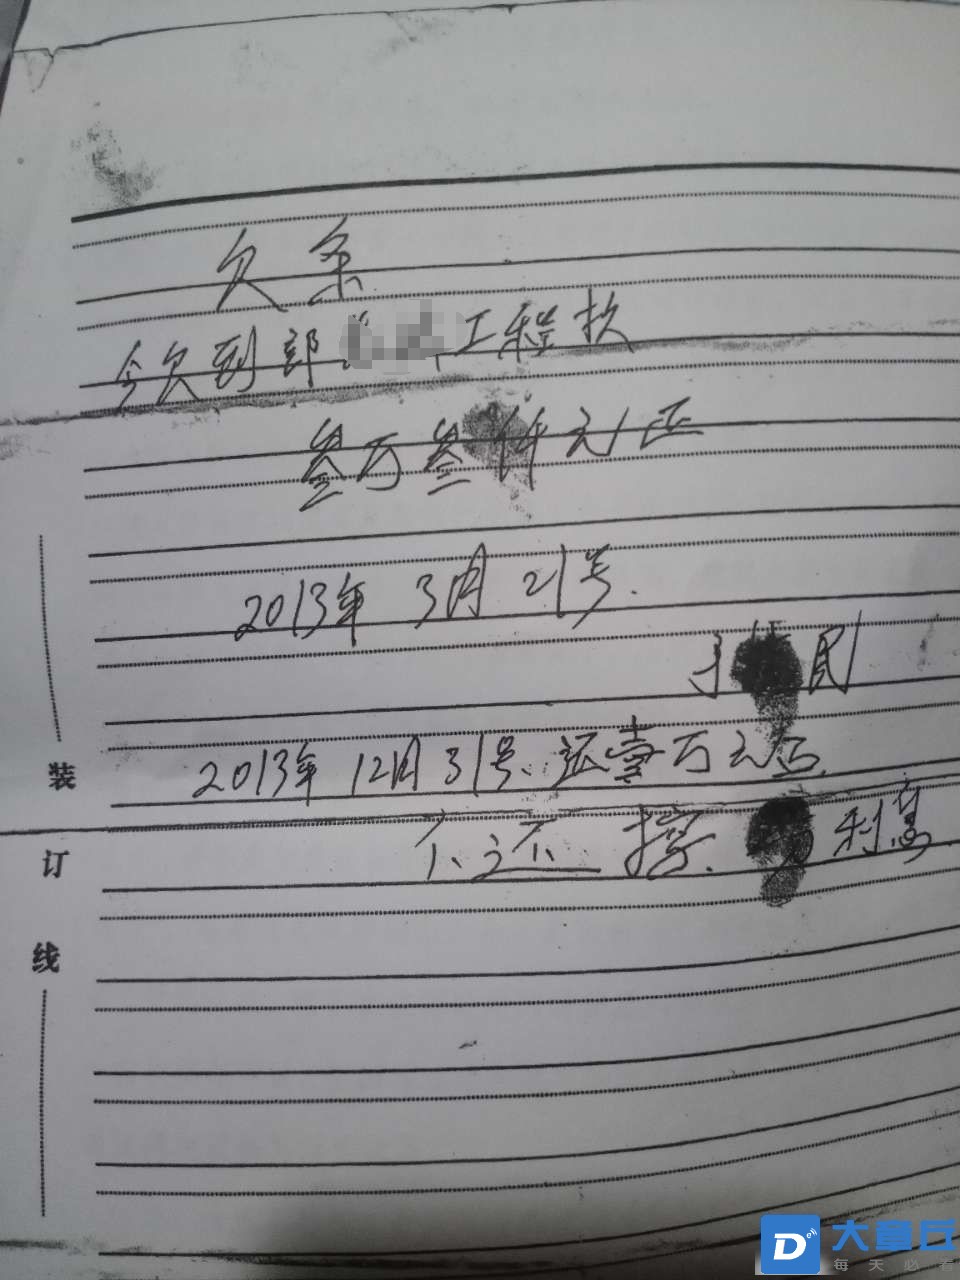 欠条
今欠到郭 工程款
叁万叁仟元正
2013年 3月 21号.
于 民
2013年 12月 31号、还壹万元正
不还 按 利息
装
订
线
大童丘
每天必看